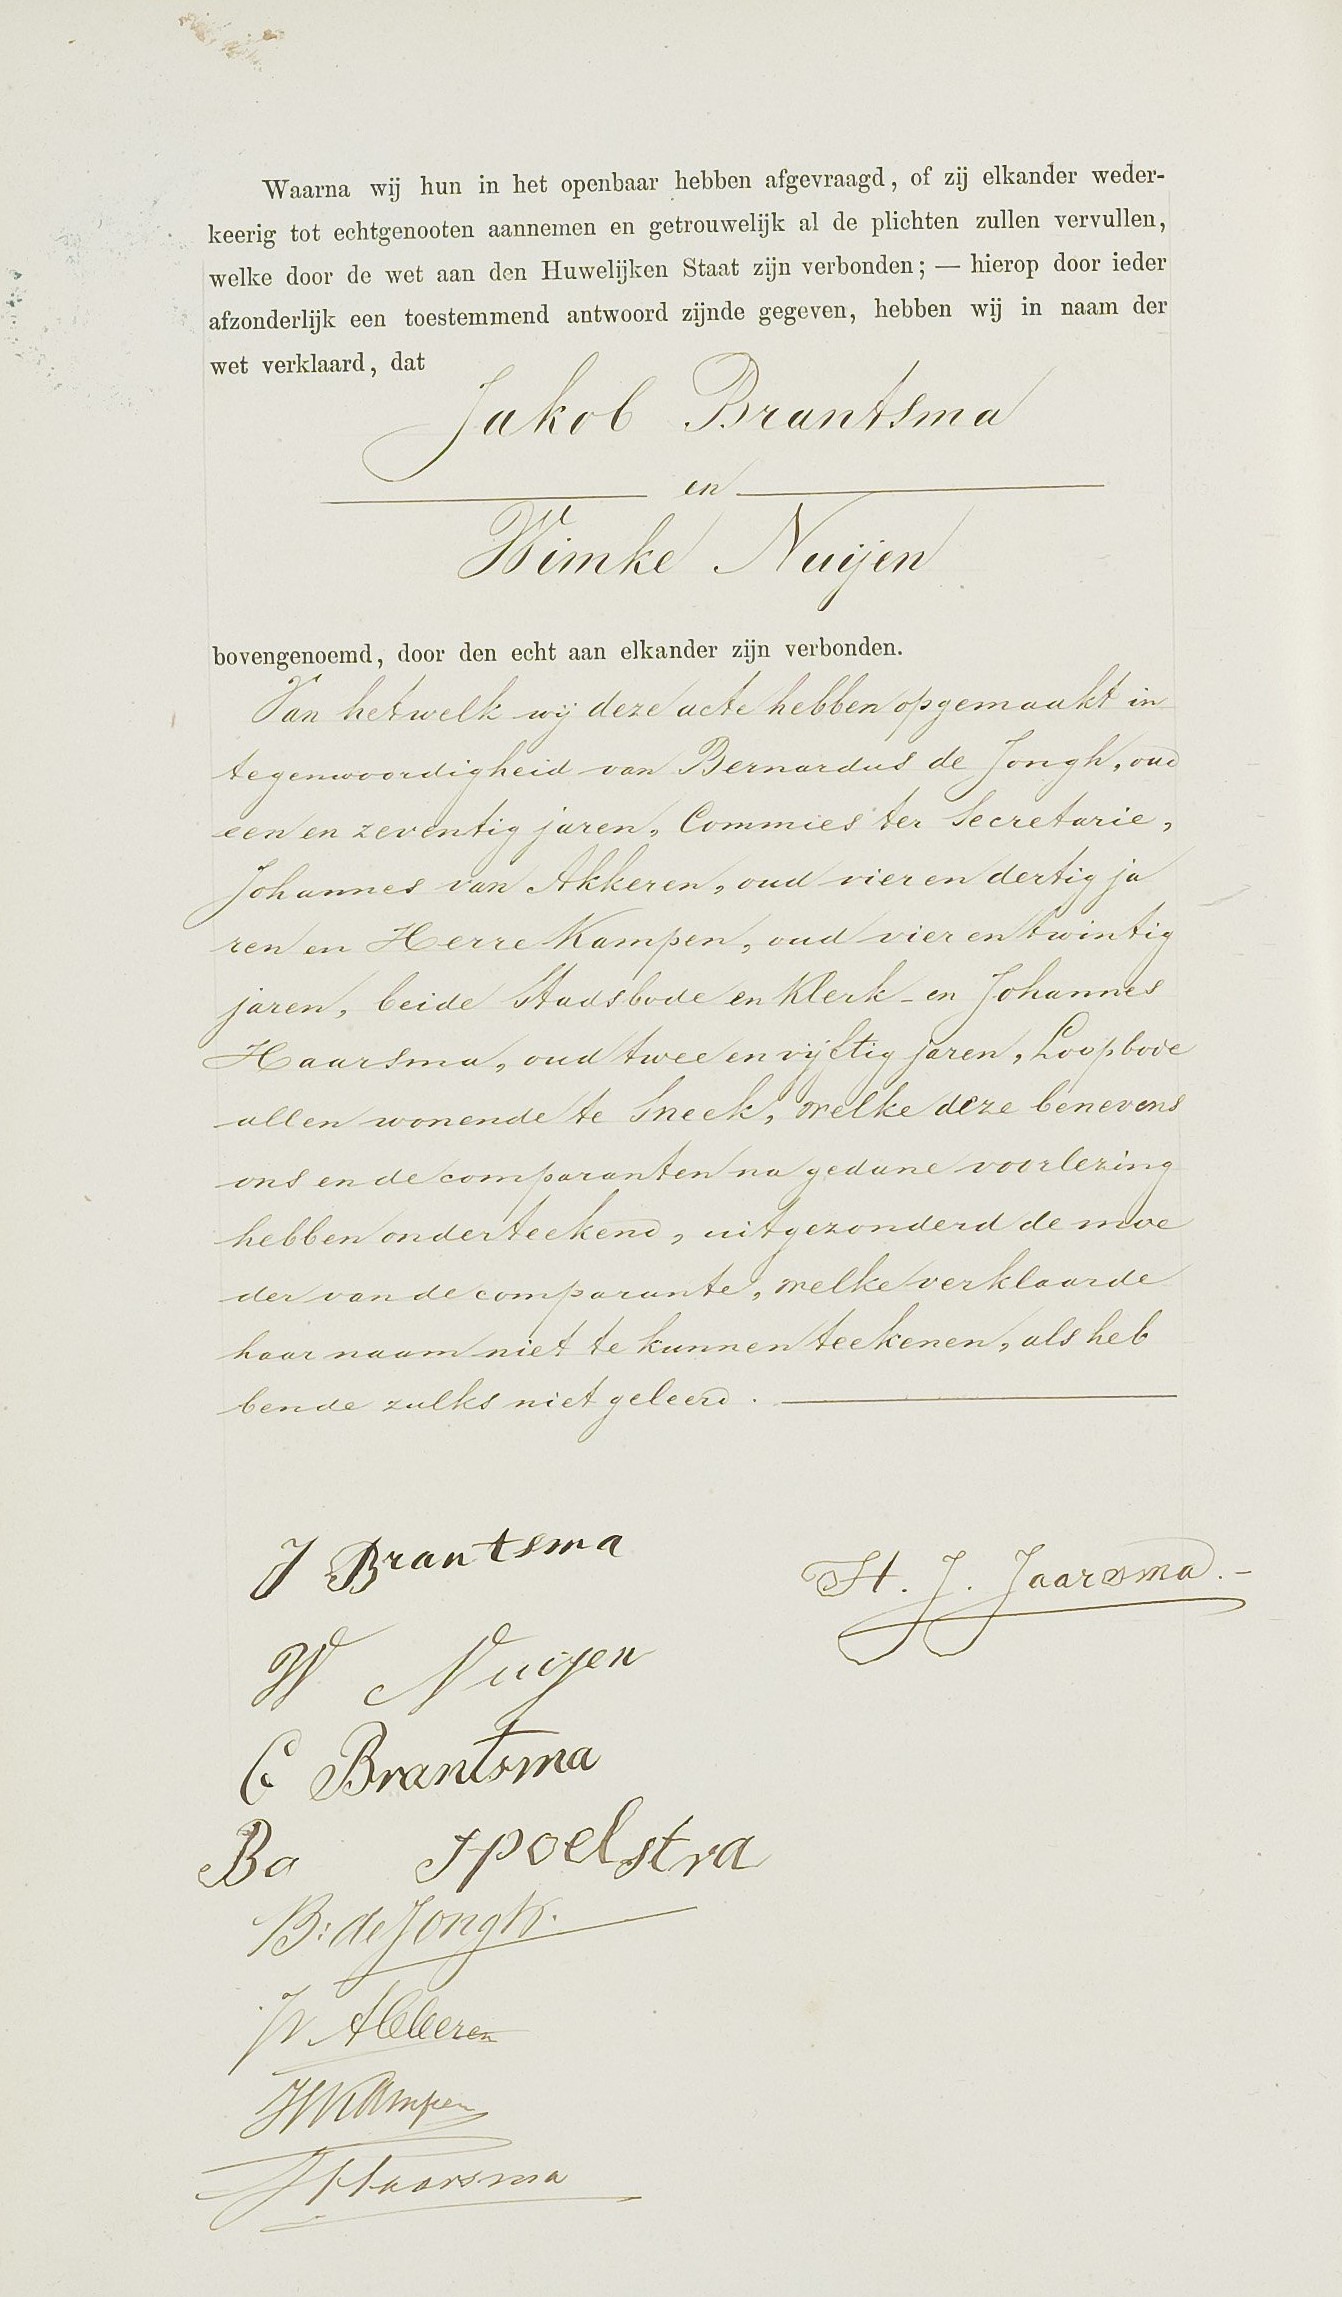 Waarna wij hun in het openbaar hebben afgevraagd, of zij elkander weder-
keerig tot echtgenooten aannemen en getrouwelijk al de plichten zullen vervullen,
welke door de wet aan den Huwelijken Staat zijn verbonden; — hierop door ieder
afzonderlijk een toestemmend antwoord zijnde gegeven, hebben wij in naam der
wet verklaard, dat
Jakob Brantsma
en
Wimke Nuijen
bovengenoemd, door den echt aan elkander zijn verbonden.
Van hetwelk wij deze acte hebben opgemaakt in
tegenwoordigheid van Bernardus de Jongh, oud
een en zeventig jaren, Commies ter Secretarie,
Johannes van Akkeren, oud vier en dertig ja
ren en Herre Kampen, oud vier en twintig
jaren, beide Stadsbode en Klerk - en Johannes
Haarsma, oud twee en vijftig jaren, Loopbode
allen wonende te Sneek, welke deze benevens
ons en de comparanten na gedane voorlezing
hebben onderteekend, uitgezonderd de moe
der van de comparante, welke verklaarde
haar naam niet te kunnen teekenen, als heb
bende zulks niet geleerd.
J Brantsma
H. J. Jaarsma.-
W Nuijen
C Brantsma
Bo Spoelstra
B: de Jongh.
JV Akkeren
HKampen
JHaarsma